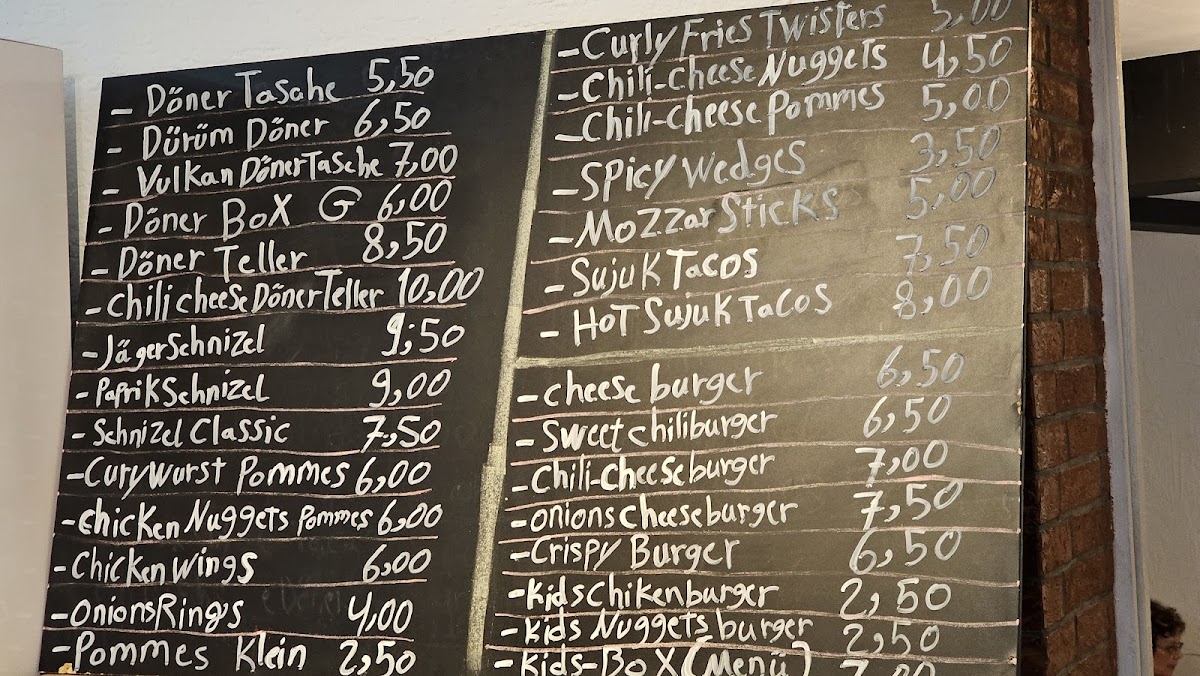 - Döner Tasche 5,50
- Dürüm Döner 6,50
- Vulkan Döner Tasche 7,00
- Döner Box G 6,00
- Döner Teller 8,50
- chili cheese Döner Teller 10,00
- Jäger Schnizel 9,50
- Paprik Schnizel 9,00
- Schnizel Classic 7,50
- Curywurst Pommes 6,00
- chicken Nuggets Pommes 6,00
- Chicken wings 6,00
- onions Rings 4,00
- Pommes Klein 2,50
- Curly Fries Twisters 5,00
- Chili-cheese Nuggets 4,50
- Chili-cheese Pommes 5,00
- Spicy Wedges 3,50
- Mozzar Sticks 5,00
- Sujuk Tacos 7,50
- HOT Sujuk Tacos 8,00
- cheese burger 6,50
- Sweet chiliburger 6,50
- Chili-cheeseburger 7,00
- onions cheeseburger 7,50
- Crispy Burger 6,50
- kids chikenburger 2,50
- kids Nuggets burger 2,50
- kids-Box (Menü)